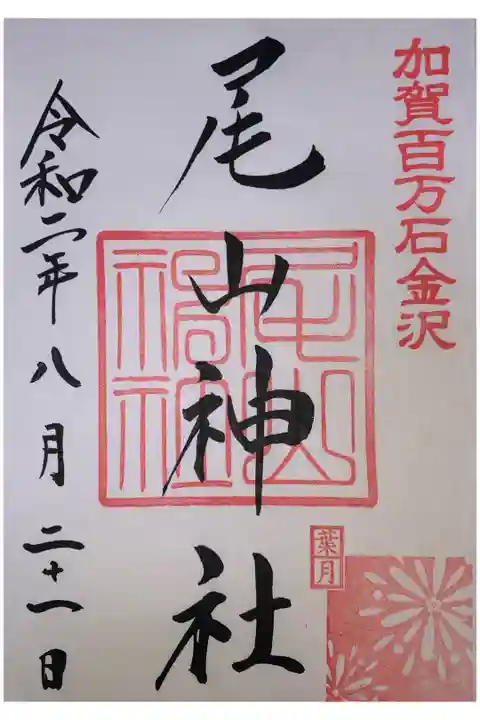 加賀百万石金沢
尾山神社
尾山
神社
葉月
令和二年八月二十一日